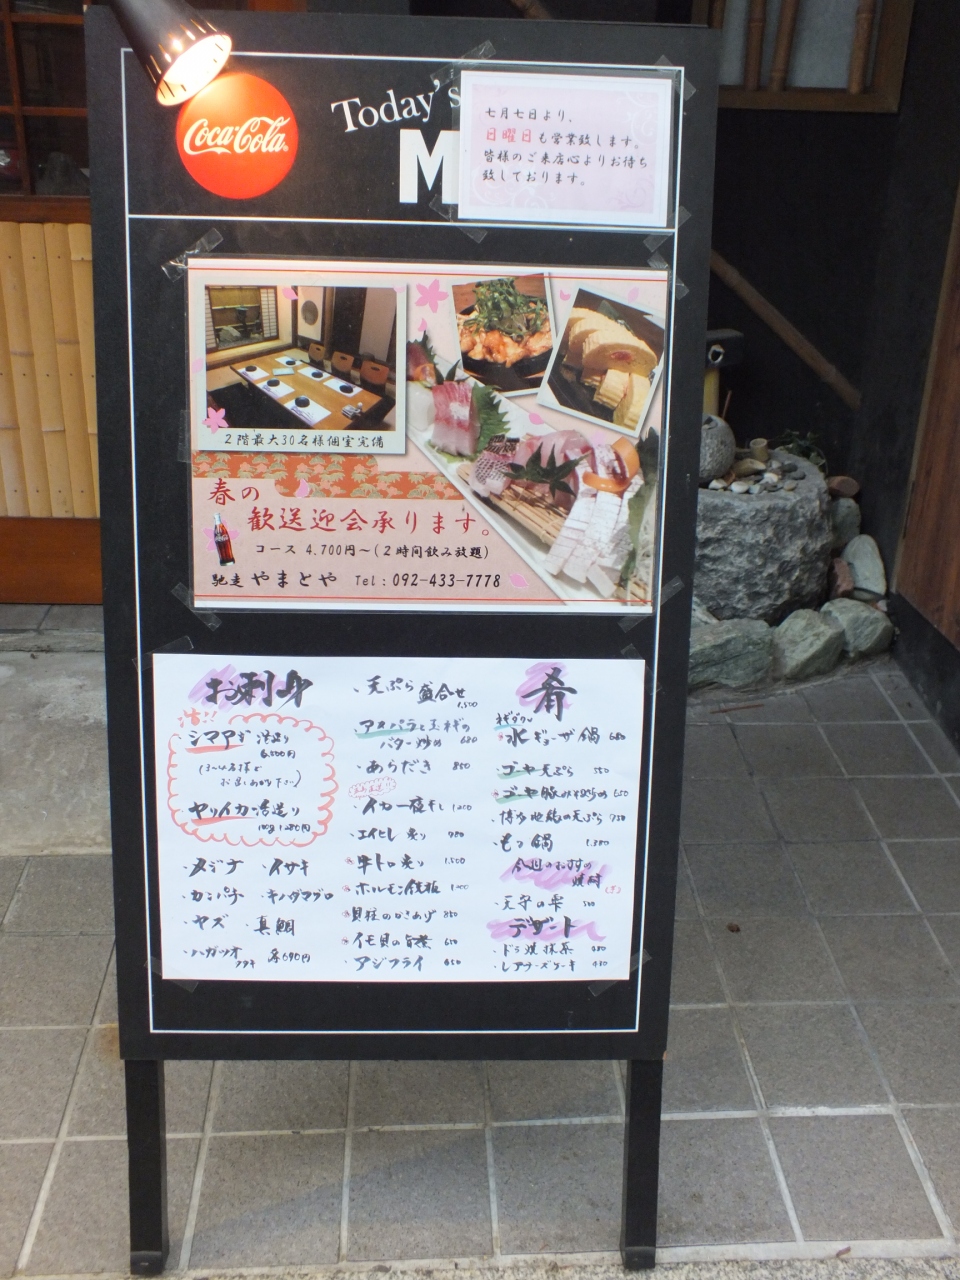 Coca-Cola
Today's
M
七月七日より、
日曜日も営業致します。
皆様のご来店心よりお待ち
致しております。
2階最大30名様個室完備
春の
歓送迎会承ります。
コース 4,700円～(2時間飲み放題)
馳走 やまとや Tel:092-433-7778
お刺身
活!!
・シマアジ 活造り
6,500円
(3〜4名様で
お召しあがり下さい)
・ヤリイカ活造り
100g 1,280円
・メジナ ・イサキ
・カンパチ ・キハダマグロ
・ヤズ ・真鯛
・ハガツオ
タタキ 各690円
・天ぷら盛合せ
1,500
・アスパラと玉ネギの
バター炒め 680
・あらだき 850
・イカ一夜干し 1200
・エイヒレ 炙り 780
・牛トロ 炙り 1,500
・ホルモン鉄板 1200
・貝柱のかきあげ 850
・イモ貝の旨煮 600
・アジフライ 650
肴
・水ギョーザ鍋 680
・ゴーヤ天ぷら 550
・ゴーヤ豚みそ炒め 650
・博多地鶏の天ぷら 750
・もつ鍋 1,380
今週のおすすめ
焼酎
・天守の雫 500
デザート
・ドラ焼抹茶 480
・レアチーズケーキ 480